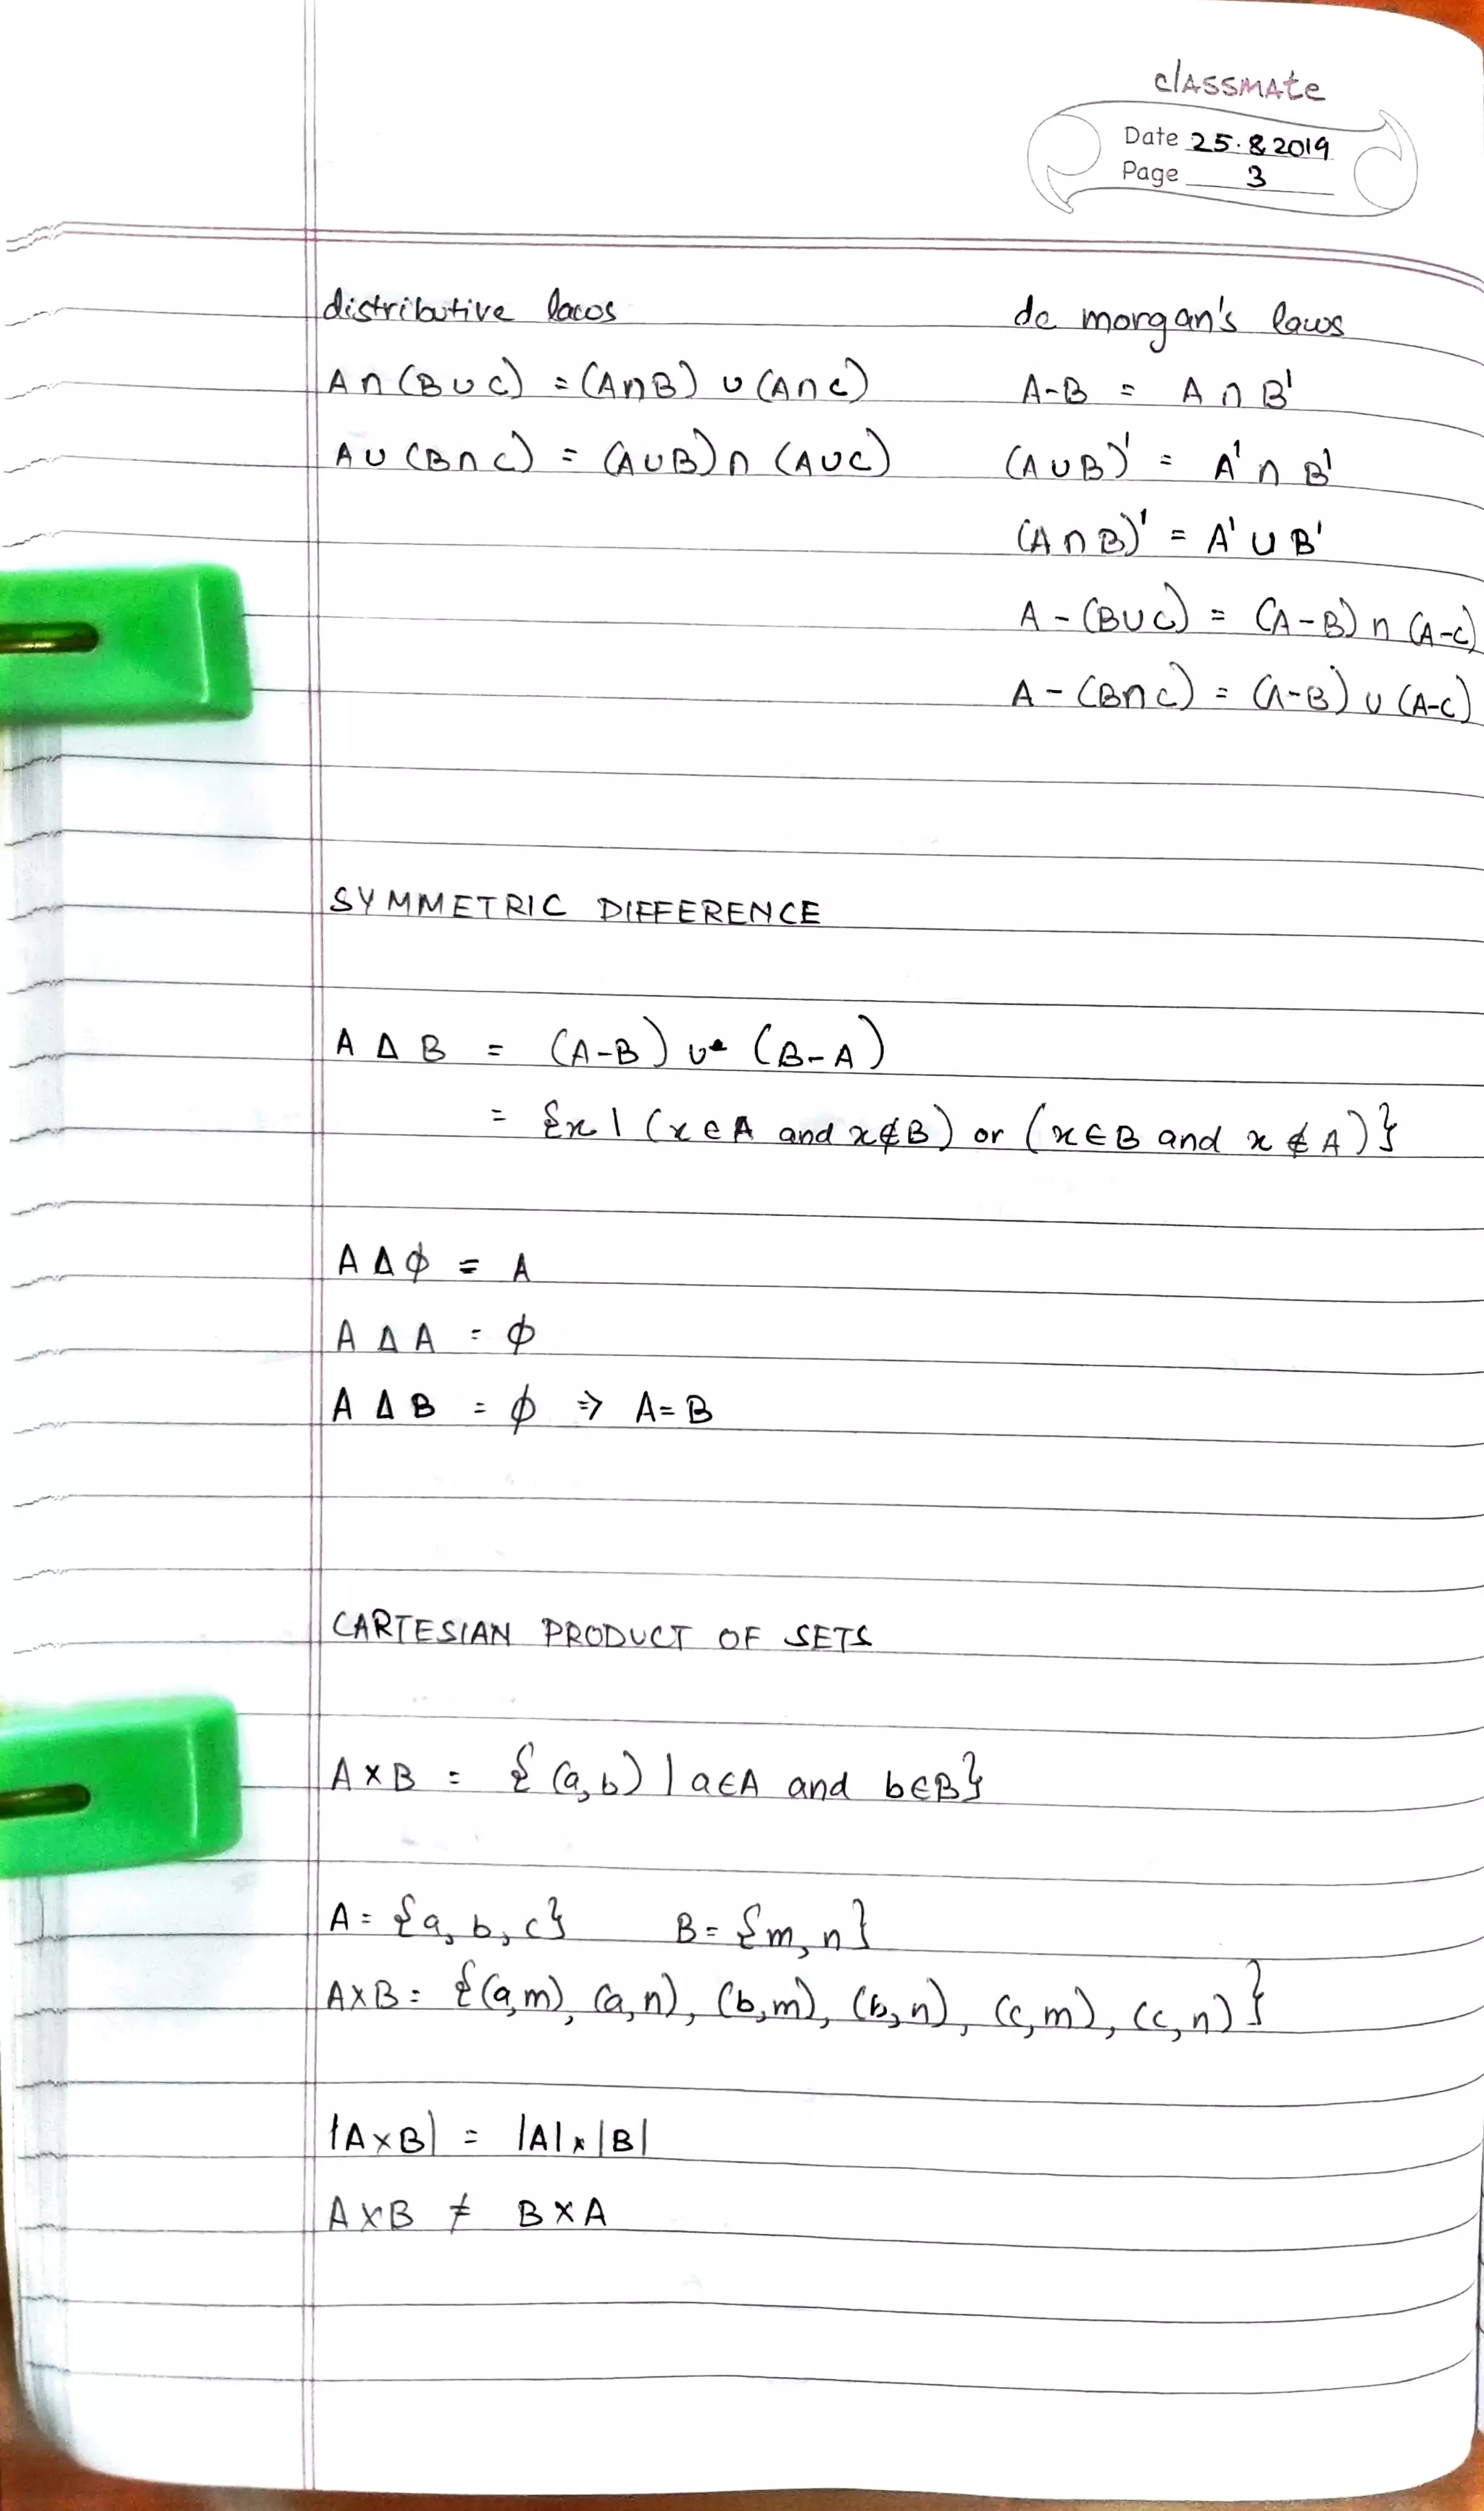 classmate
Date 25.8.2019
Page 3
distributive laws
A∩(B∪C) = (A∩B) ∪ (A∩C)
A∪(B∩C) = (A∪B)∩(A∪C)
de morgan's laws
A-B = A∩B'
(A∪B)' = A'∩B'
(A∩B)' = A'∪B'
A-(B∪C) = (A-B)∩(A-C)
A-(B∩C) = (A-B)∪(A-C)
SYMMETRIC DIFFERENCE
A Δ B = (A-B) ∪ (B-A)
= {x | (x∈A and x∉B) or (x∈B and x∉A)}
A Δ ϕ = A
A Δ A = ϕ
A Δ B = ϕ ⇒ A=B
CARTESIAN PRODUCT OF SETS
A×B = {(a,b) | a∈A and b∈B}
A = {a, b, c} B = {m, n}
A×B = {(a,m), (a,n), (b,m), (b,n), (c,m), (c,n)}
|A×B| = |A|×|B|
A×B ≠ B×A